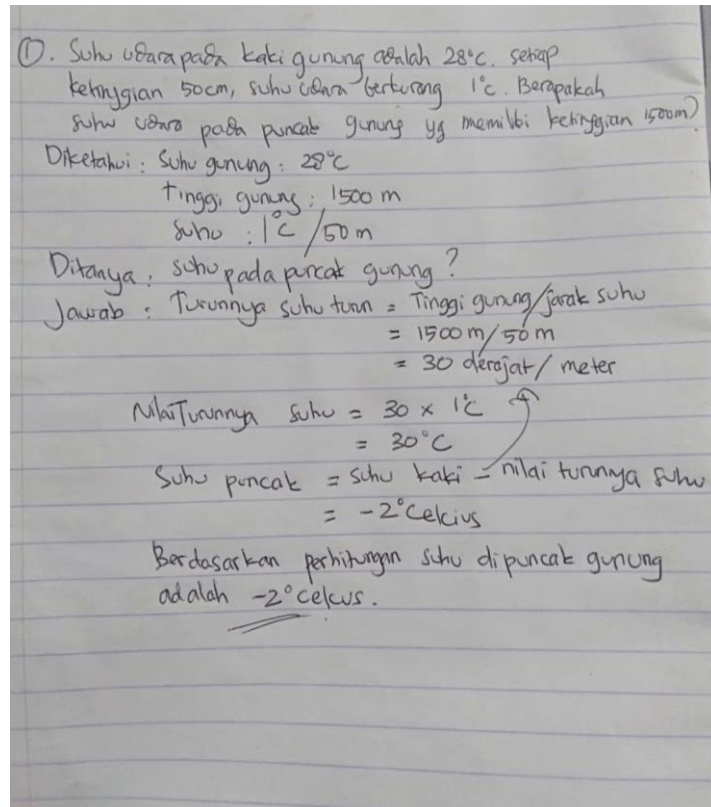 ①. Suhu udara pada kaki gunung adalah 28°C. setiap
ketinggian 50cm, suhu udara berkurang 1°C. Berapakah
suhu udara pada puncak gunung yg memiliki ketinggian 1500m?
Diketahui : Suhu gunung : 28°C
tinggi gunung : 1500 m
Suhu : 1°C/50 m
Ditanya : suhu pada puncak gunung?
Jawab : Turunnya suhu turun = Tinggi gunung/jarak suhu
= 1500m/50m
= 30 derajat/meter
Nilai Turunnya suhu = 30 x 1°C
= 30°C
Suhu puncak = suhu kaki - nilai turunnya suhu
= -2°Celcius
Berdasarkan perhitungan suhu dipuncak gunung
adalah -2°celcus.